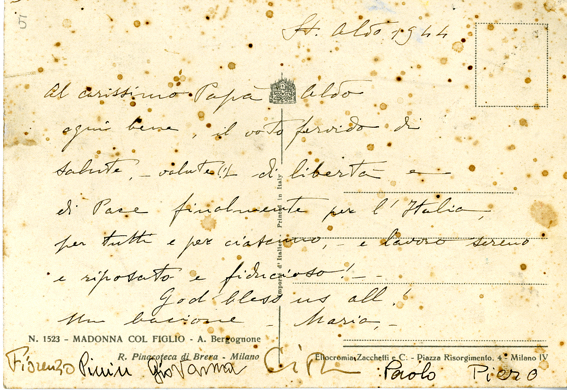 St. Aldo 1944
Al carissimo Papà Aldo
ogni bene, il voto fervido di
salute, - valute (!) di libertà e
di Pace finalmente per l'Italia,
per tutti e per ciascuno, - e lavoro sereno
e riposato e fiducioso! -
God bless us all!
Un bacione - Maria, -
N. 1523 - MADONNA COL FIGLIO - A. Bergognone
R. Pinacoteca di Brera - Milano
Eliocromia Zacchetti e C. - Piazza Risorgimento, 4 - Milano IV
Imprimé d'Italie - Printed in Italy
Fiorenzo Pinin Giovanna Paolo Piero